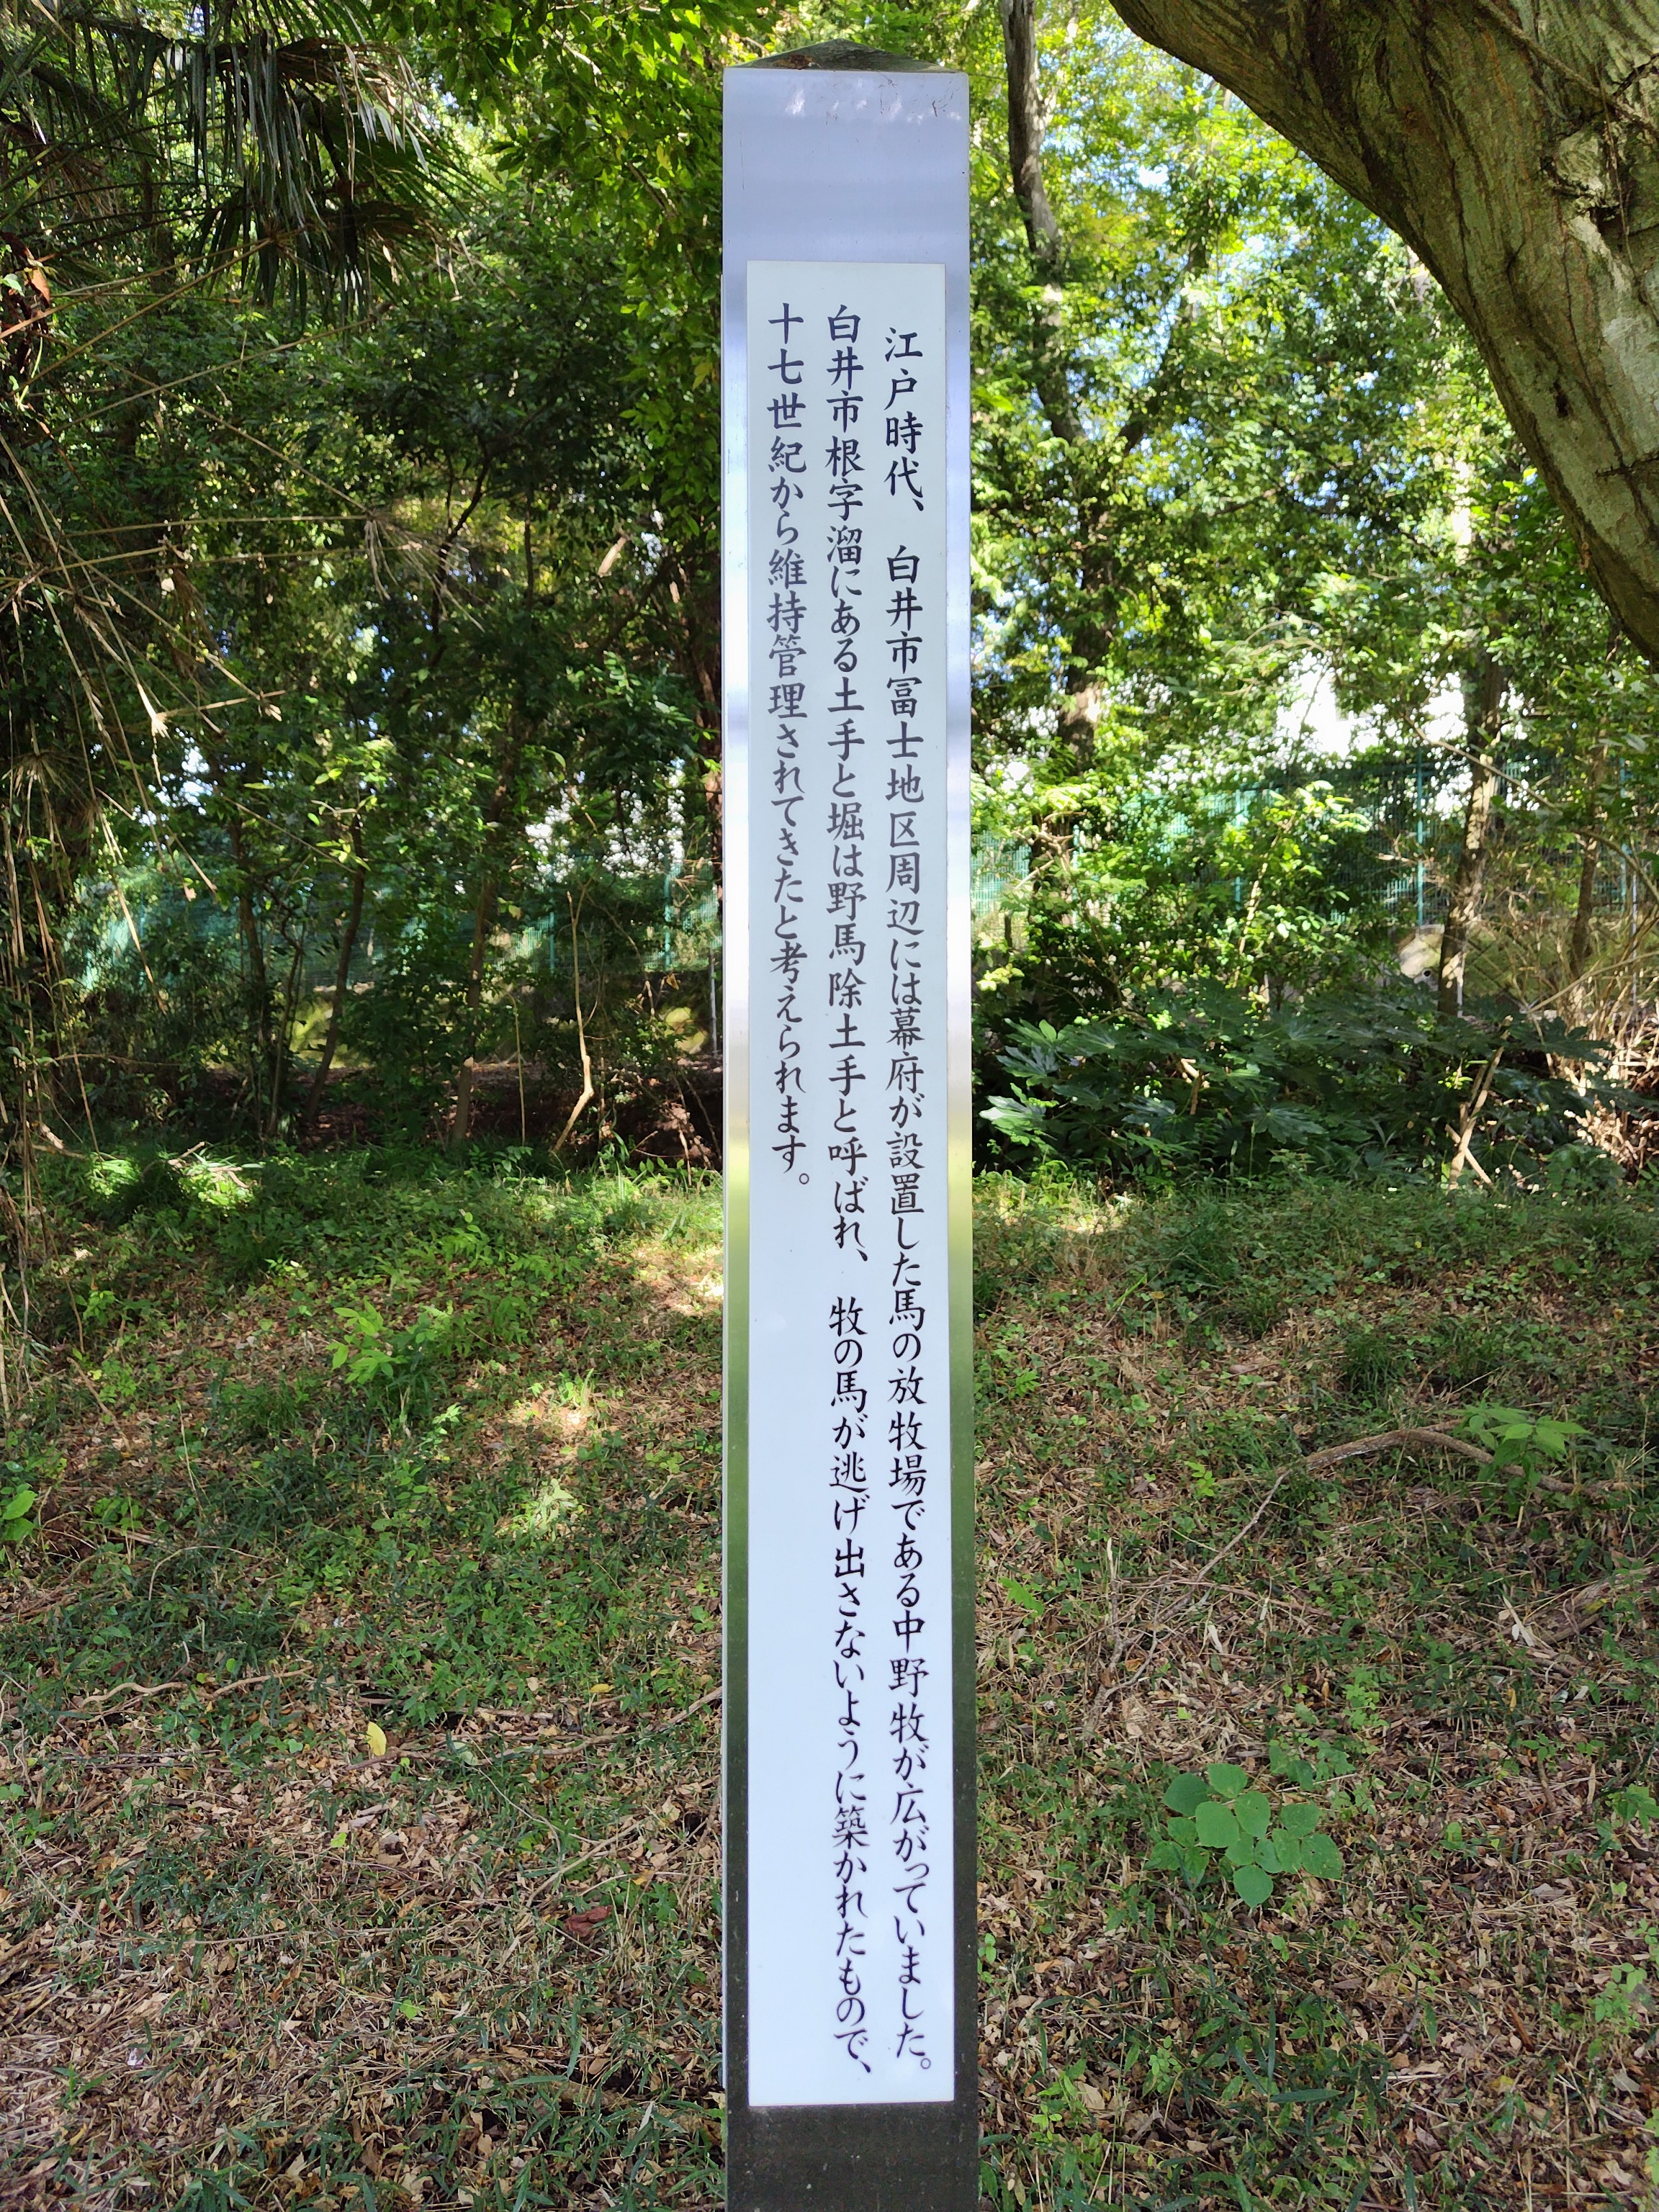 江戸時代、白井市冨士地区周辺には幕府が設置した馬の放牧場である中野牧が広がっていました。
白井市根字溜にある土手と堀は野馬除土手と呼ばれ、牧の馬が逃げ出さないように築かれたもので、
十七世紀から維持管理されてきたと考えられます。